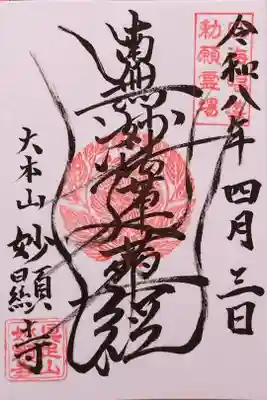 令和八年 四月 三日
勅願霊場
南無妙法蓮華経
大本山 妙顯寺